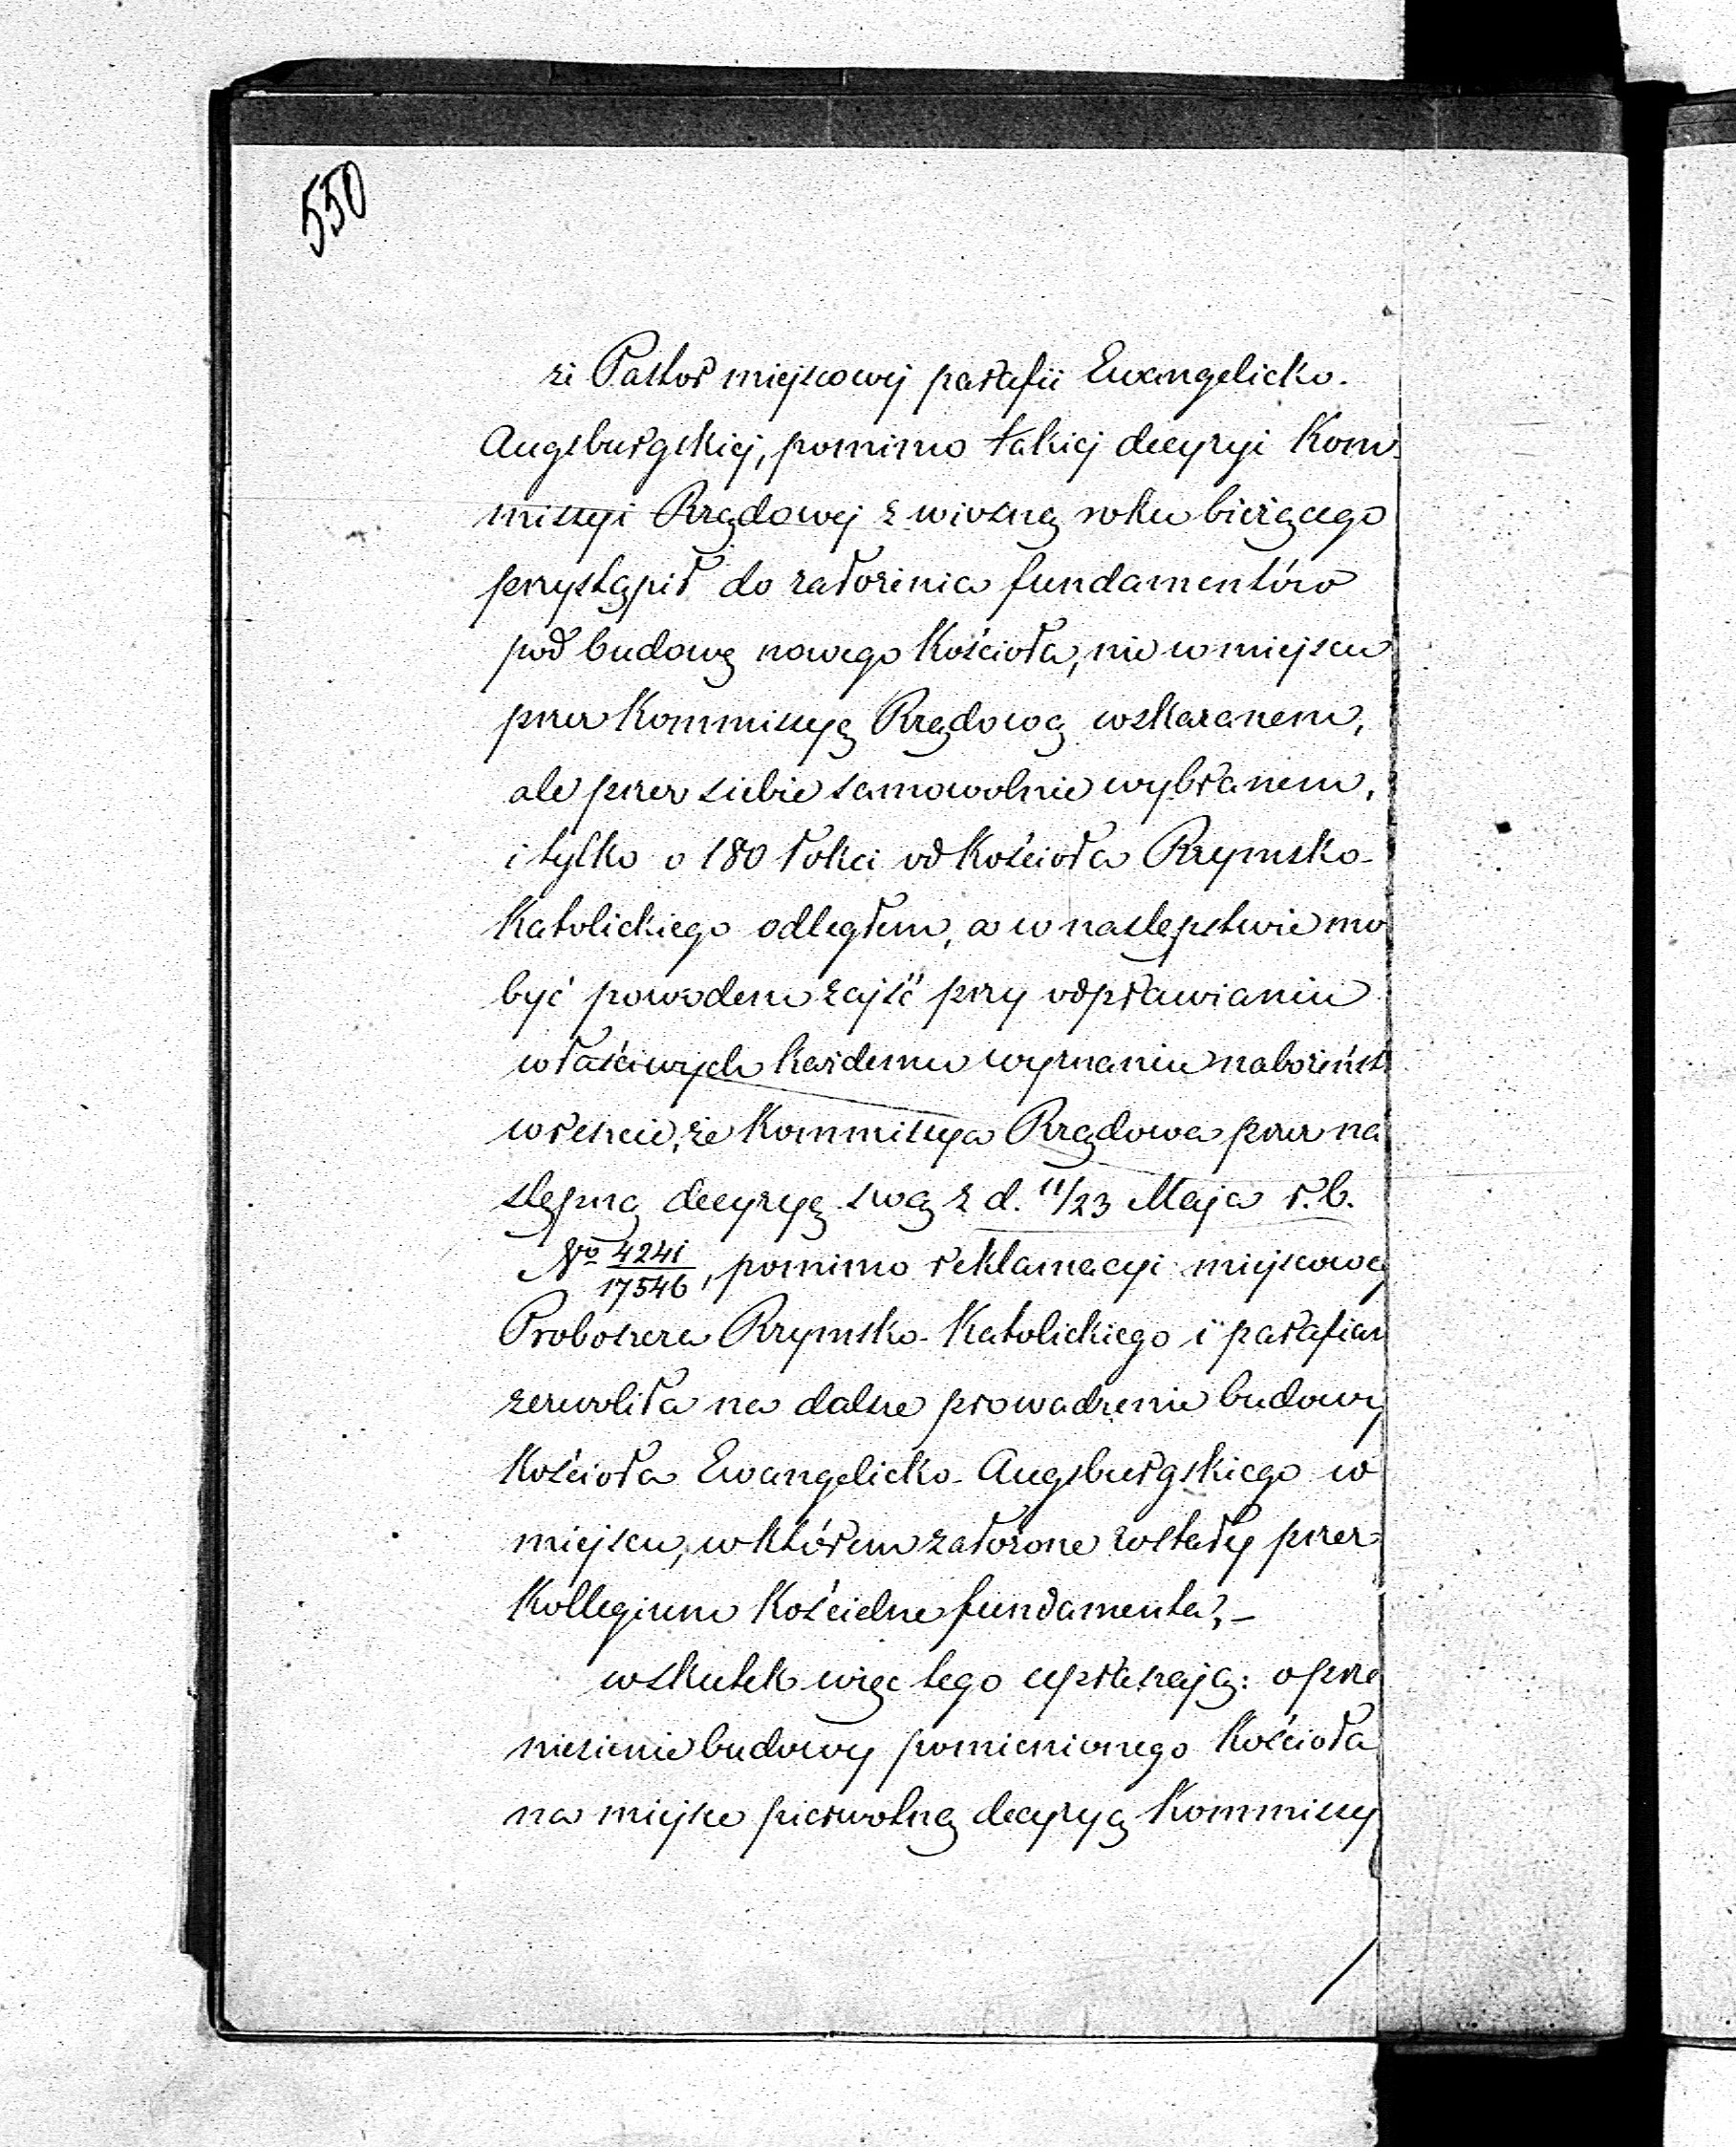 550
że Pastor miejscowej parafii Ewangelicko-
Augsburgskiej, pomimo takiej decyzyi Kom-
missyi Rządowej z wiosną roku bieżącego
przystąpił do założenia fundamentów
pod budowę nowego Kościoła, nie w miejscu
przez Kommissyę Rządową wskazanem,
ale przez siebie samowolnie wybranem,
i tylko o 180 łokci od Kościoła Rzymsko-
Katolickiego odległem, a w następstwie mo
być powodem zajść przy odprawianiu
właściwych każdemu wyznaniu nabożeńst
wreszcie, że Kommissya Rządowa przez na
stępną decyzyę swą z d. 11/23 Maja r. b.
No 4241/17546, pomimo reklamacyi miejscoweg
Proboszcza Rzymsko-Katolickiego i parafian
zezwoliła na dalsze prowadzenie budowy
Kościoła Ewangelicko-Augsburgskiego w
miejscu, w którem założone zostały przez
Kollegium Kościelne fundamenta,—
wskutek więc tego upraszają: o prze
niesienie budowy pomienionego Kościoła
na miejsce pierwotną decyzyą Kommissy